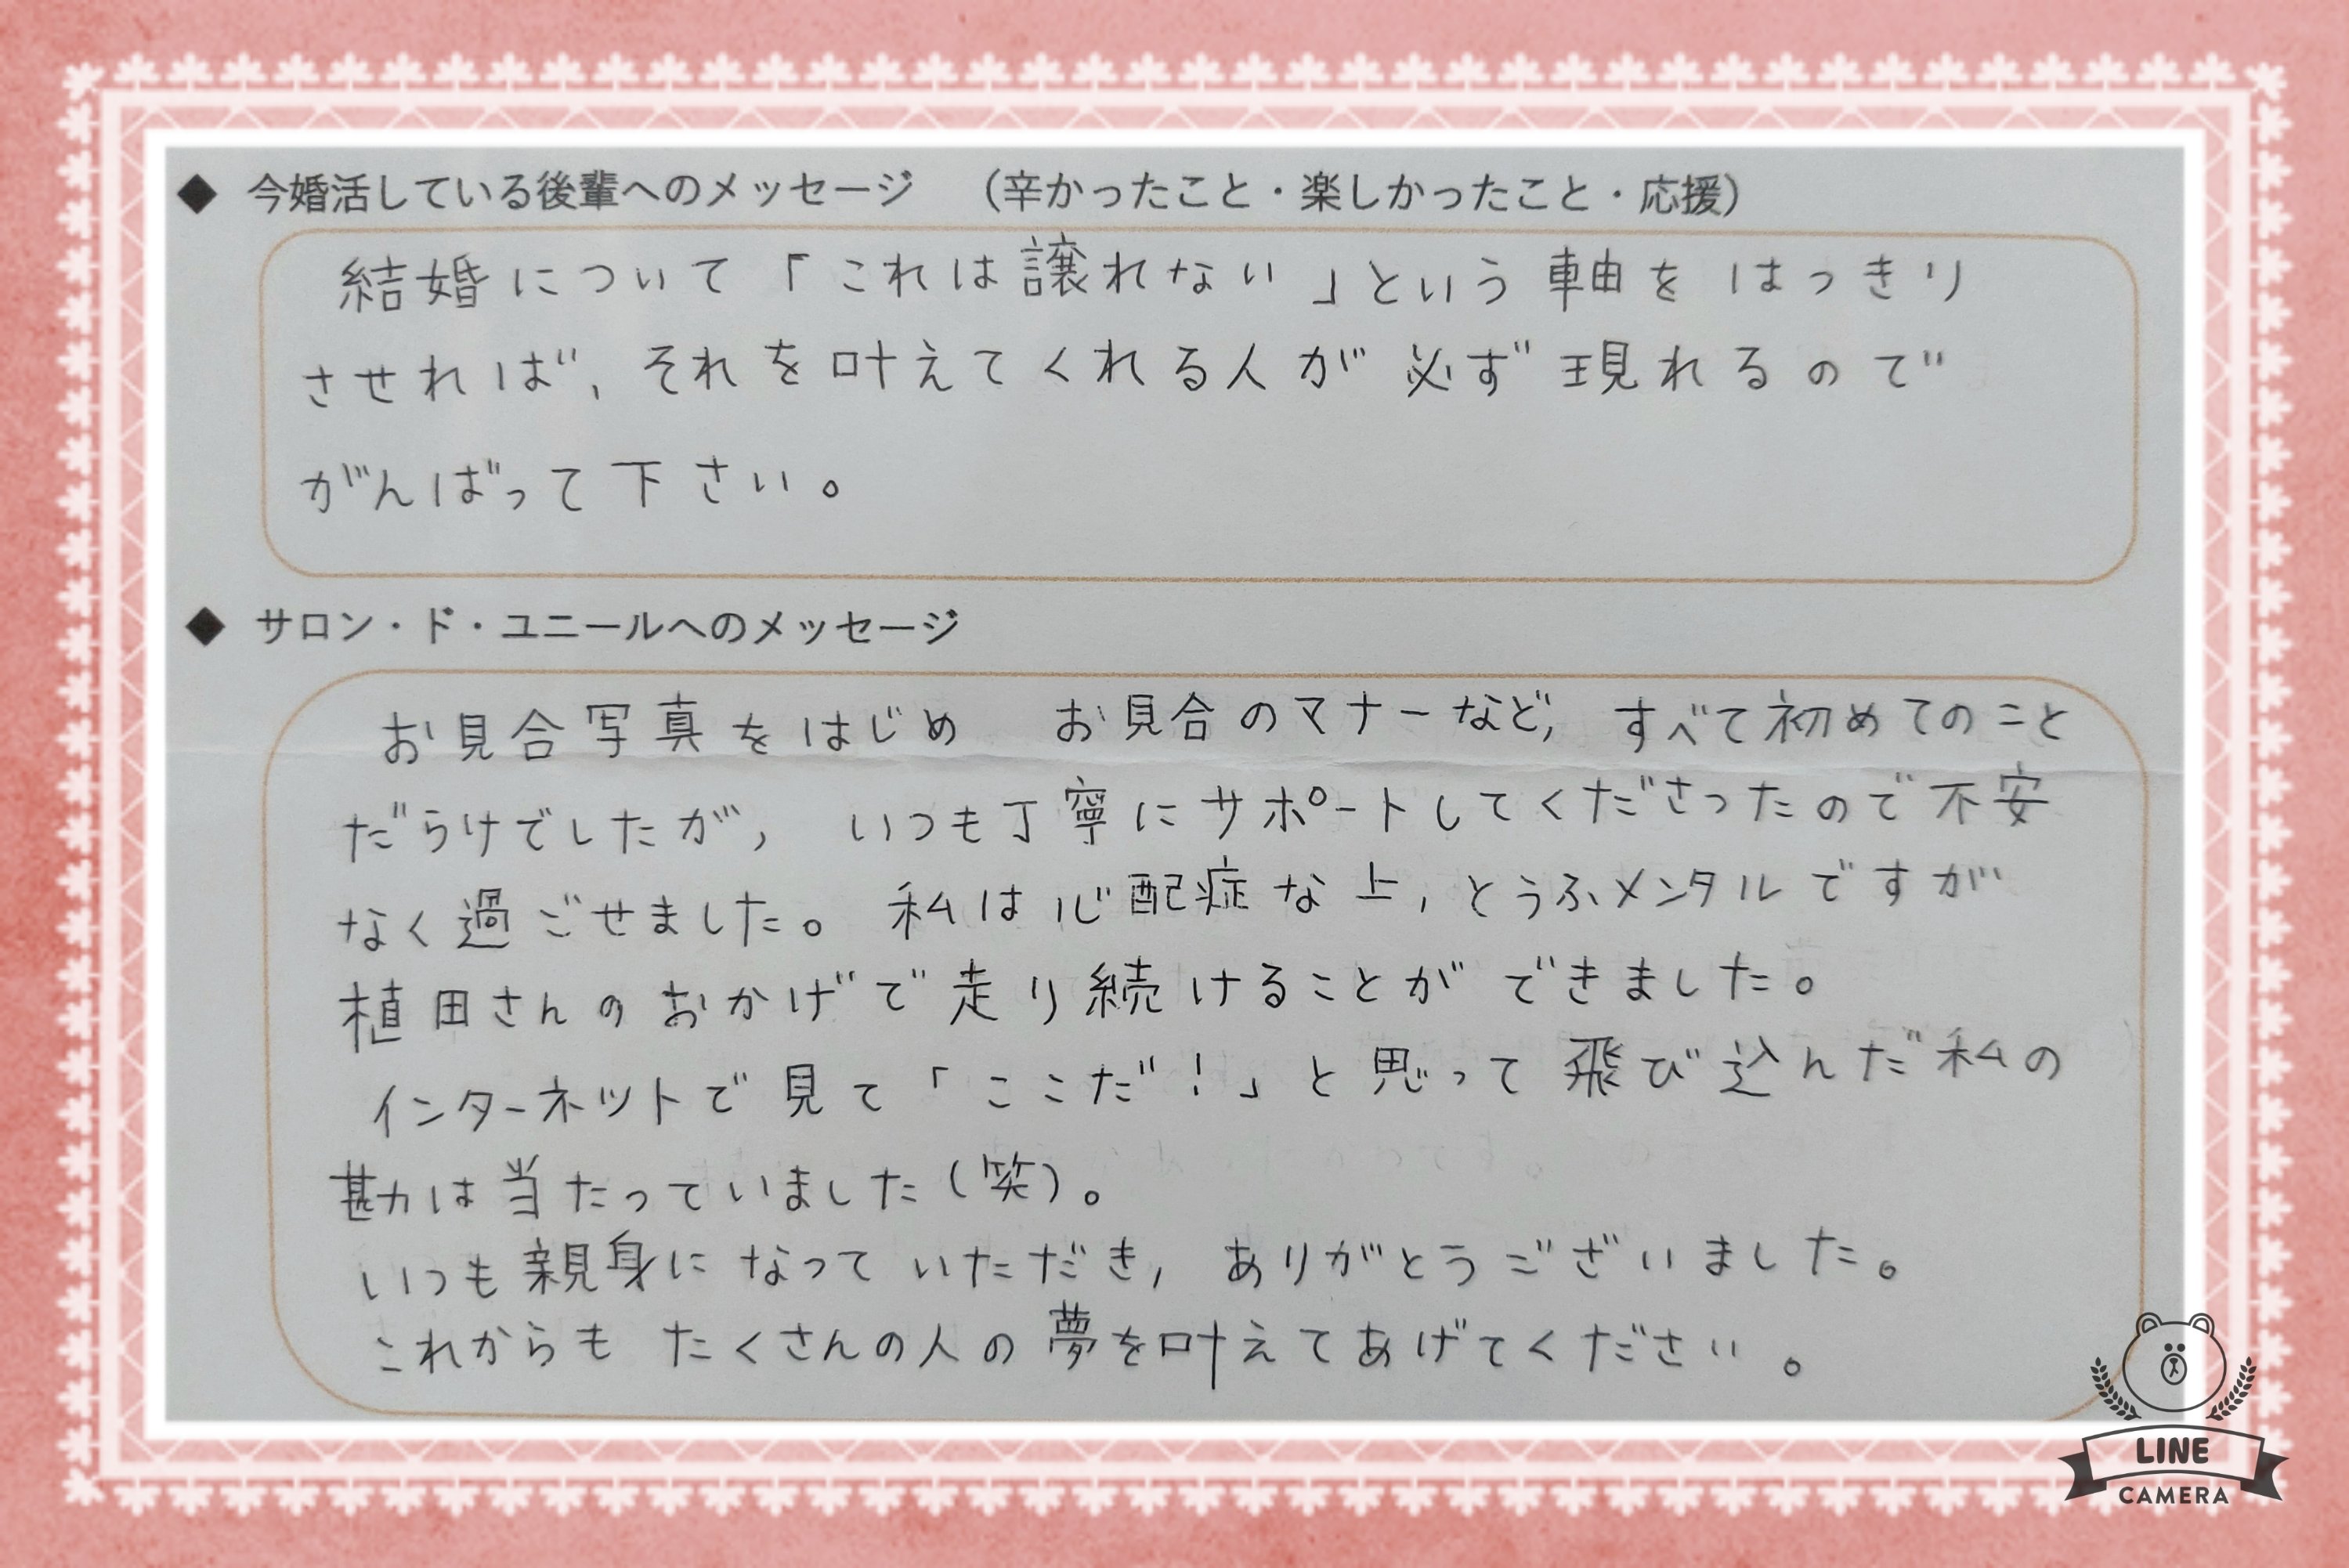 ◆ 今婚活している後輩へのメッセージ （辛かったこと・楽しかったこと・応援）
結婚について「これは譲れない」という軸をはっきり
させれば、それを叶えてくれる人が必ず現れるので
がんばって下さい。
◆ サロン・ド・ユニールへのメッセージ
お見合写真をはじめ お見合のマナーなど, すべて初めてのこと
だらけでしたが, いつも丁寧にサポートしてくださったので不安
なく過ごせました。私は心配症な上, とうふメンタルですが
植田さんのおかげで走り続けることができました。
インターネットで見て「ここだ！」と思って飛び込んだ私の
勘は当たっていました（笑）。
いつも親身になっていただき, ありがとうございました。
これからも たくさんの人の夢を叶えてあげてください。
LINE
CAMERA